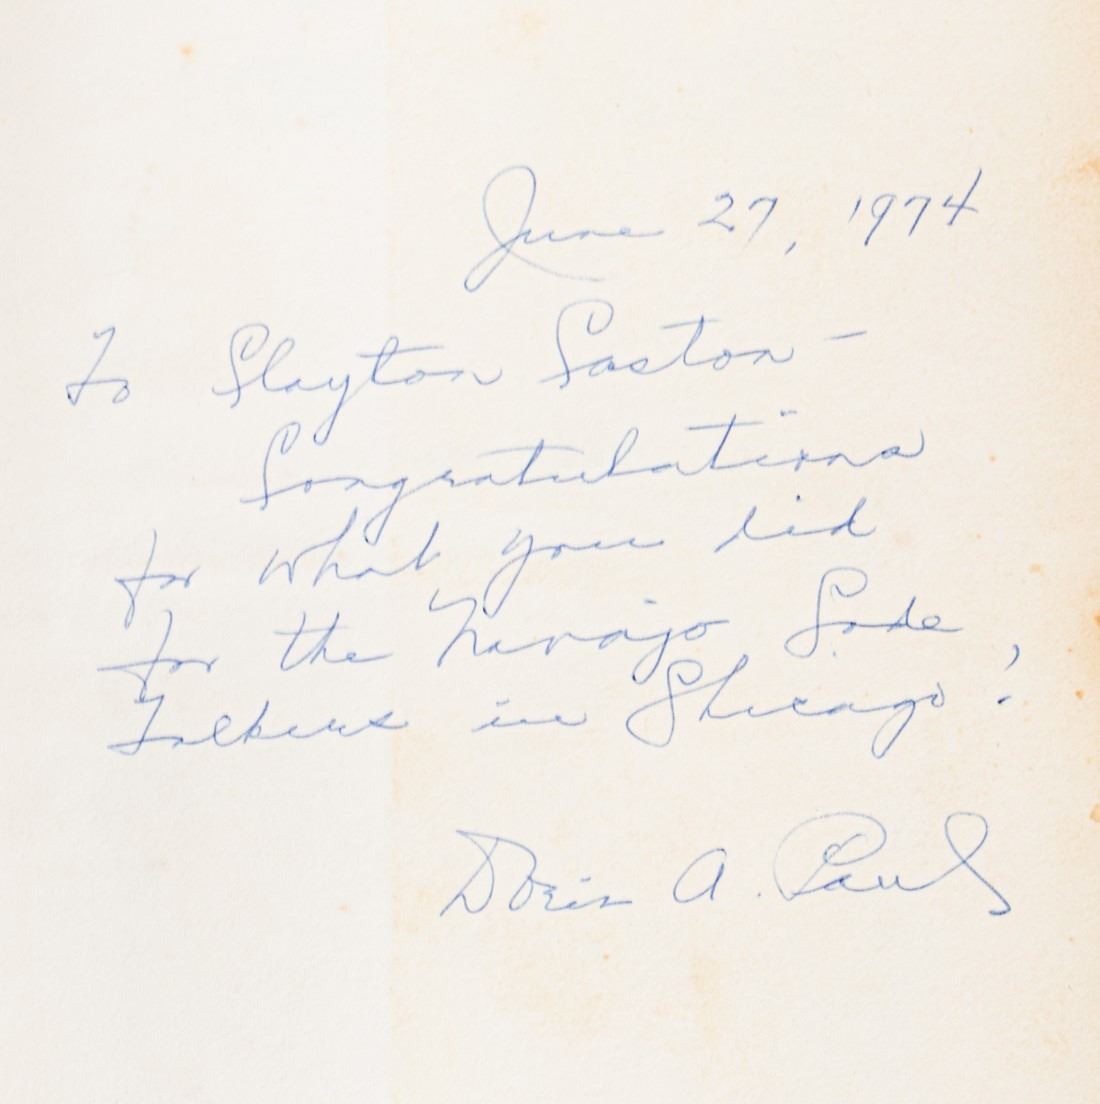 June 27, 1974
To Clayton Caston –
Congratulations
for what you did
for the Navajo Code
Talkers in Chicago!
Doris A. Paul